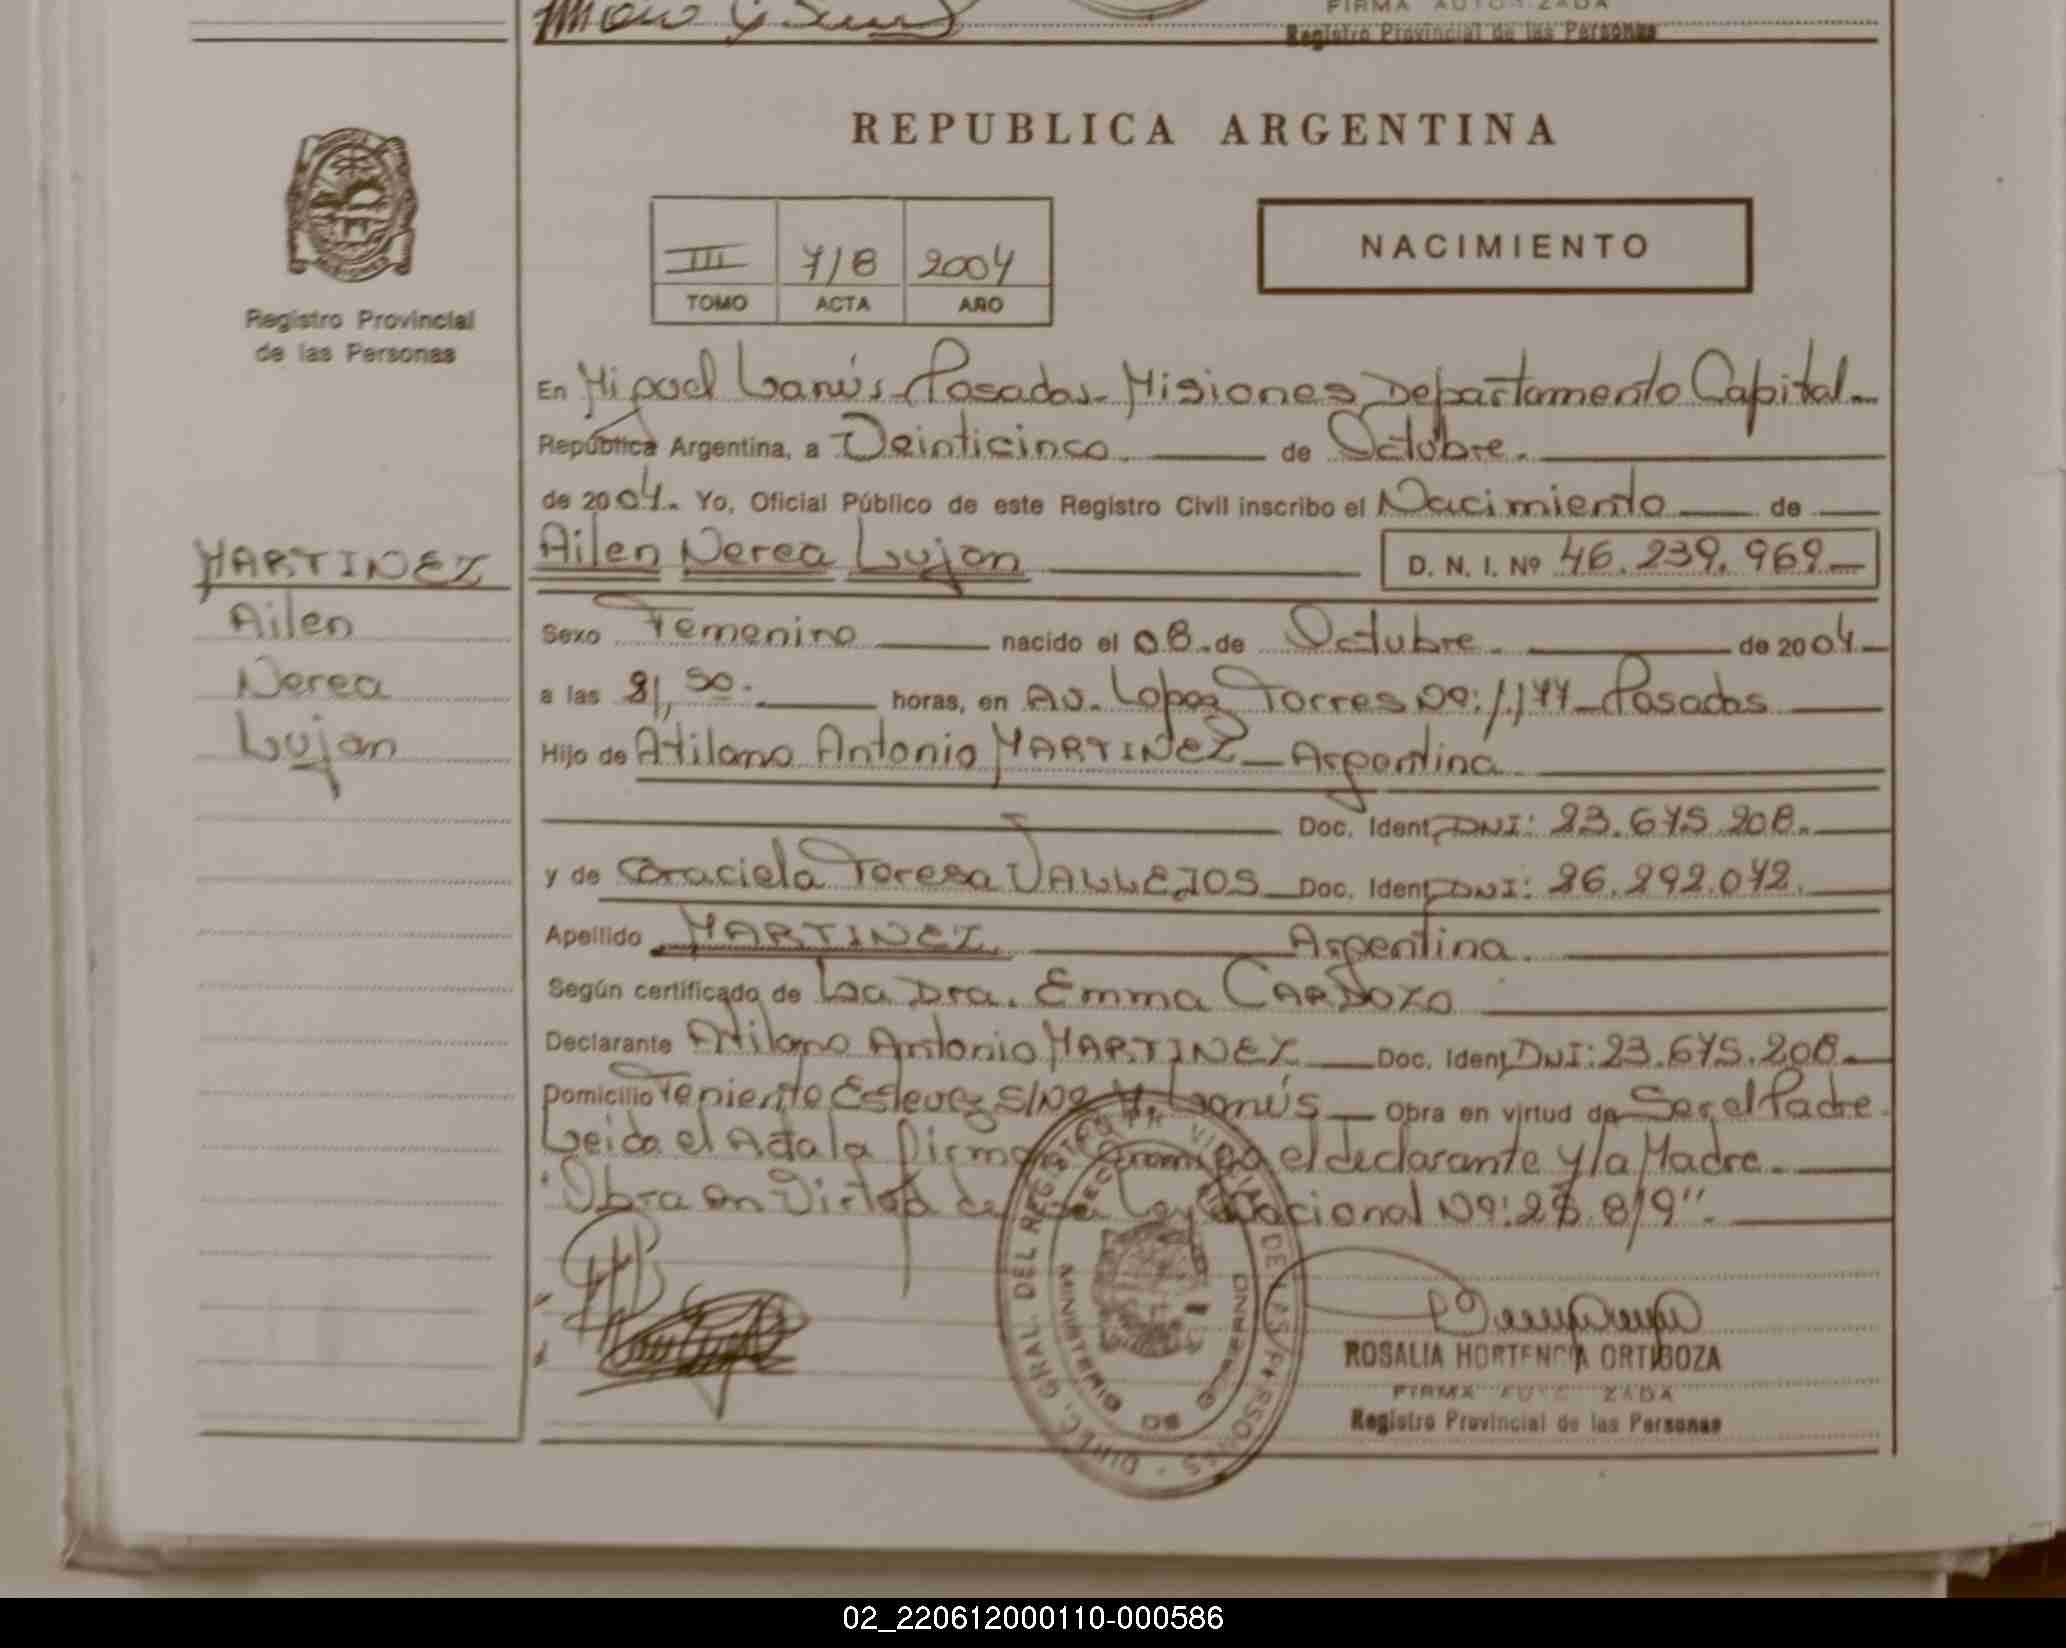 FIRMA AUTORIZADA
Registro Provincial de las Personas
REPUBLICA ARGENTINA
NACIMIENTO
III 718 2004
TOMO ACTA AÑO
Registro Provincial
de las Personas
En Miguel Lanús-Posadas-Misiones Departamento Capital-
República Argentina, a Veinticinco. de Octubre.
de 2004. Yo, Oficial Público de este Registro Civil inscribo el Nacimiento de
Ailen Nerea Lujan D. N. I. Nº 46.239.969
MARTINEZ
Ailen
Nerea
Lujan
Sexo Femenino nacido el 08 de Octubre. de 2004
a las 21,50. horas, en Av. Lopez Torres Nº: 1.177 Posadas
Hijo de Atilano Antonio MARTINEZ Argentina
Doc. Ident. DNI: 23.675.208.
y de Graciela Teresa VALLEJOS Doc. Ident. DNI: 26.292.072.
Apellido MARTINEZ. Argentina.
Según certificado de La Dra. Emma CARDOZO
Declarante Atilano Antonio MARTINEZ Doc. Ident. DNI: 23.675.208.
Domicilio Teniente Estevez S/Nº Lanús Obra en virtud de Ser el Padre.
Leida el Acta la firman Conmigo el declarante y la Madre.
"Obra en Virtud de Ley Nacional Nº: 25.819".
DIREC. GRAL. DEL REGISTRO PROVINCIAL DE LAS PERSONAS
ROSALIA HORTENCIA ORTIGOZA
FIRMA AUTORIZADA
Registro Provincial de las Personas
02_220612000110-000586